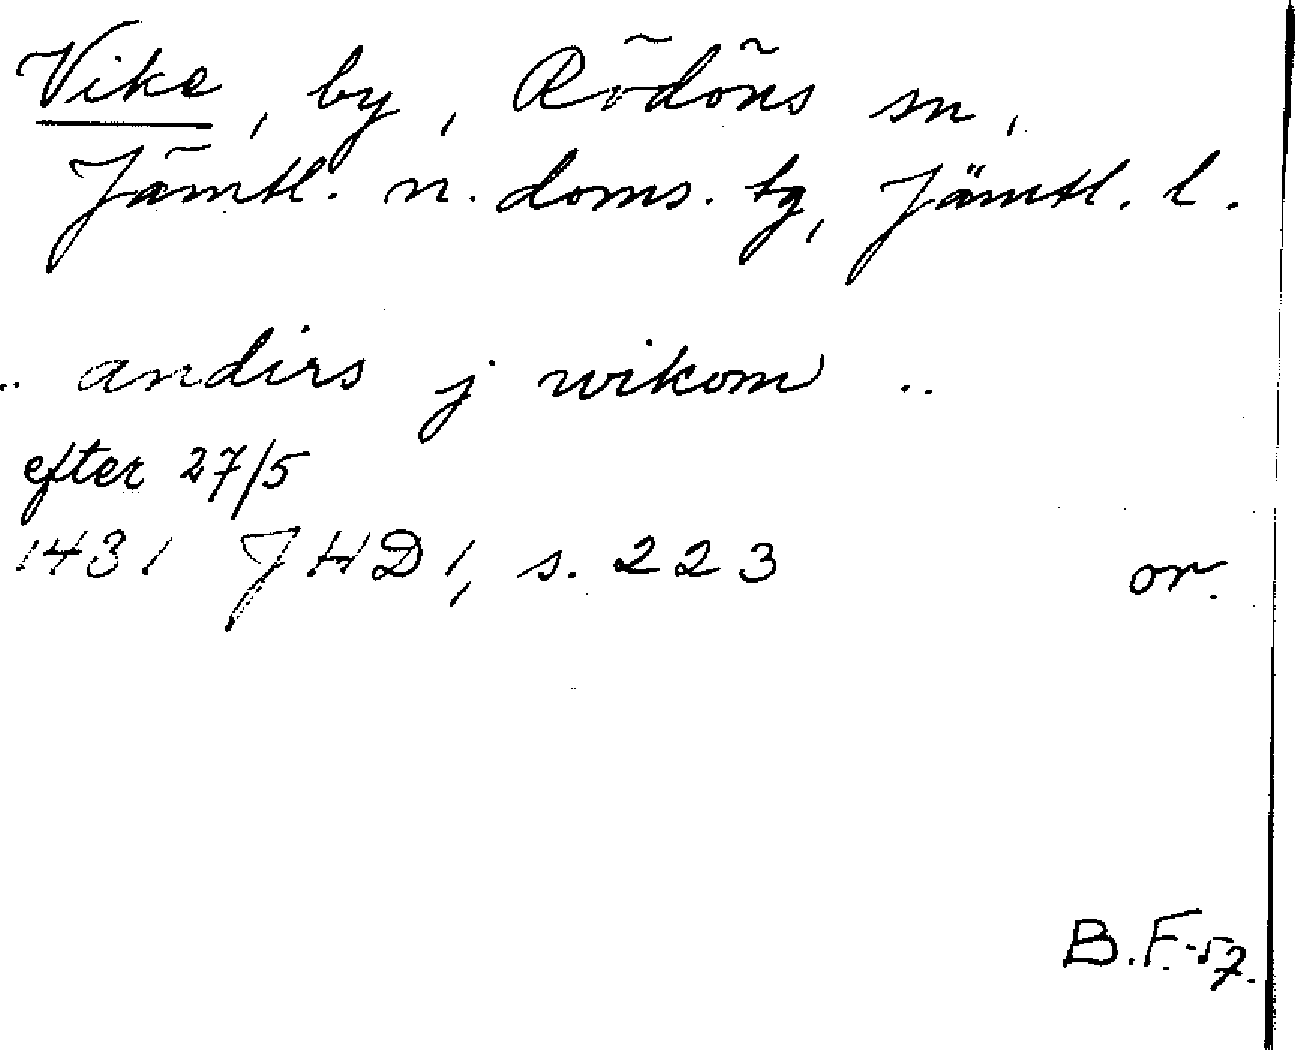 Vike, by, Rödöns sn,
Jämtl. n. doms. tg, Jämtl. l.
.. andirs j wikom ..
efter 27/5
1431 JHD 1, s. 223 or.
B.F.-57.